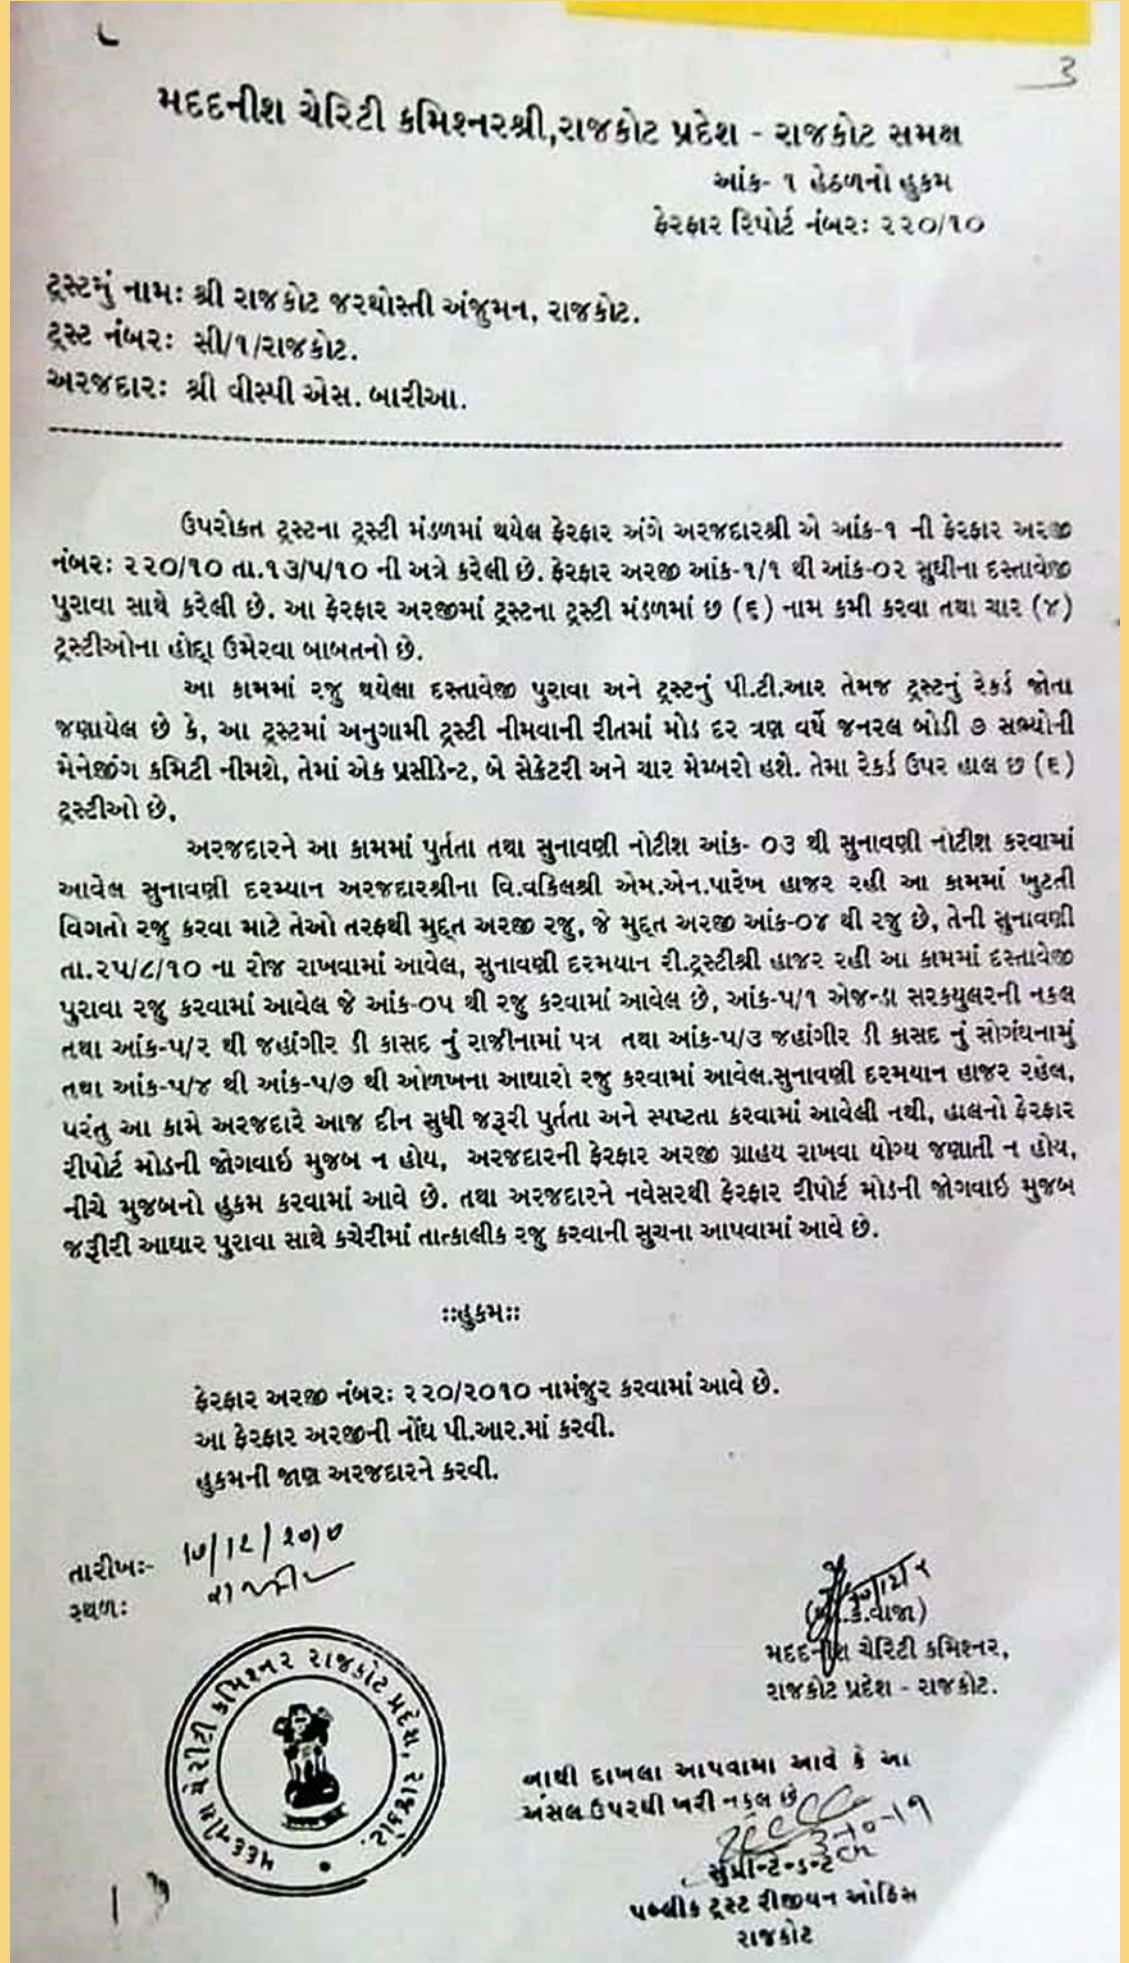 ૩
મદદનીશ ચેરિટી કમિશ્નરશ્રી,રાજકોટ પ્રદેશ - રાજકોટ સમક્ષ
આંક- ૧ હેઠળનો હુકમ
ફેરફાર રિપોર્ટ નંબર: ૨૨૦/૧૦
ટ્રસ્ટનું નામ: શ્રી રાજકોટ જરથોસ્તી અંજુમન, રાજકોટ.
ટ્રસ્ટ નંબર: સી/૧/રાજકોટ.
અરજદાર: શ્રી વીસ્પી એસ. બારીઆ.
ઉપરોકત ટ્રસ્ટના ટ્રસ્ટી મંડળમાં થયેલ ફેરફાર અંગે અરજદારશ્રી એ આંક-૧ ની ફેરફાર અરજી
નંબર: ૨૨૦/૧૦ તા.૧૩/૫/૧૦ ની અત્રે કરેલી છે. ફેરફાર અરજી આંક-૧/૧ થી આંક-૦૨ સુધીના દસ્તાવેજી
પુરાવા સાથે કરેલી છે. આ ફેરફાર અરજીમાં ટ્રસ્ટના ટ્રસ્ટી મંડળમાં છ (૬) નામ કમી કરવા તથા ચાર (૪)
ટ્રસ્ટીઓના હોદ્દા ઉમેરવા બાબતનો છે.
આ કામમાં રજુ થયેલા દસ્તાવેજી પુરાવા અને ટ્રસ્ટનું પી.ટી.આર તેમજ ટ્રસ્ટનું રેકર્ડ જોતા
જણાયેલ છે કે, આ ટ્રસ્ટમાં અનુગામી ટ્રસ્ટી નીમવાની રીતમાં મોડ દર ત્રણ વર્ષે જનરલ બોડી ૭ સભ્યોની
મેનેજીંગ કમિટી નીમશે, તેમાં એક પ્રસીડેન્ટ, બે સેક્રેટરી અને ચાર મેમ્બરો હશે. તેમા રેકર્ડ ઉપર હાલ છ (૬)
ટ્રસ્ટીઓ છે.
અરજદારને આ કામમાં પુર્તતા તથા સુનાવણી નોટીશ આંક- ૦૩ થી સુનાવણી નોટીશ કરવામાં
આવેલ સુનાવણી દરમ્યાન અરજદારશ્રીના વિ.વકિલશ્રી એમ.એન.પારેખ હાજર રહી આ કામમાં ખુટતી
વિગતો રજુ કરવા માટે તેઓ તરફથી મુદ્દત અરજી રજુ, જે મુદ્દત અરજી આંક-૦૪ થી રજુ છે, તેની સુનાવણી
તા.૨૫/૮/૧૦ ના રોજ રાખવામાં આવેલ, સુનાવણી દરમયાન રી.ટ્રસ્ટીશ્રી હાજર રહી આ કામમાં દસ્તાવેજી
પુરાવા રજુ કરવામાં આવેલ જે આંક-૦૫ થી રજુ કરવામાં આવેલ છે, આંક-૫/૧ એજન્ડા સરકયુલરની નકલ
તથા આંક-૫/૨ થી જહાંગીર ડી કાસદ નું રાજીનામાં પત્ર તથા આંક-૫/૩ જહાંગીર ડી કાસદ નું સોગંધનામું
તથા આંક-૫/૪ થી આંક-૫/૭ થી ઓળખના આધારો રજુ કરવામાં આવેલ.સુનાવણી દરમયાન હાજર રહેલ,
પરંતુ આ કામે અરજદારે આજ દીન સુધી જરૂરી પુર્તતા અને સ્પષ્ટતા કરવામાં આવેલી નથી, હાલનો ફેરફાર
રીપોર્ટ મોડની જોગવાઇ મુજબ ન હોય, અરજદારની ફેરફાર અરજી ગ્રાહય રાખવા યોગ્ય જણાતી ન હોય,
નીચે મુજબનો હુકમ કરવામાં આવે છે. તથા અરજદારને નવેસરથી ફેરફાર રીપોર્ટ મોડની જોગવાઇ મુજબ
જરૂીરી આધાર પુરાવા સાથે કચેરીમાં તાત્કાલીક રજુ કરવાની સુચના આપવામાં આવે છે.
::હુકમ::
ફેરફાર અરજી નંબર: ૨૨૦/૨૦૧૦ નામંજુર કરવામાં આવે છે.
આ ફેરફાર અરજીની નોંધ પી.આર.માં કરવી.
હુકમની જાણ અરજદારને કરવી.
તારીખ:-
સ્થળ: રાજકોટ
કે.વાજા)
મદદનીશ ચેરિટી કમિશ્નર,
રાજકોટ પ્રદેશ - રાજકોટ.
મદદનીશ ચેરીટી કમિશ્નર રાજકોટ પ્રદેશ, રાજકોટ.
આથી દાખલા આપવામા આવે કે આ
અસલ ઉપરથી ખરી નકલ છે
સુપ્રીન્ટેન્ડન્ટ
પબ્લીક ટ્રસ્ટ રીજીયન ઓફિસ
રાજકોટ